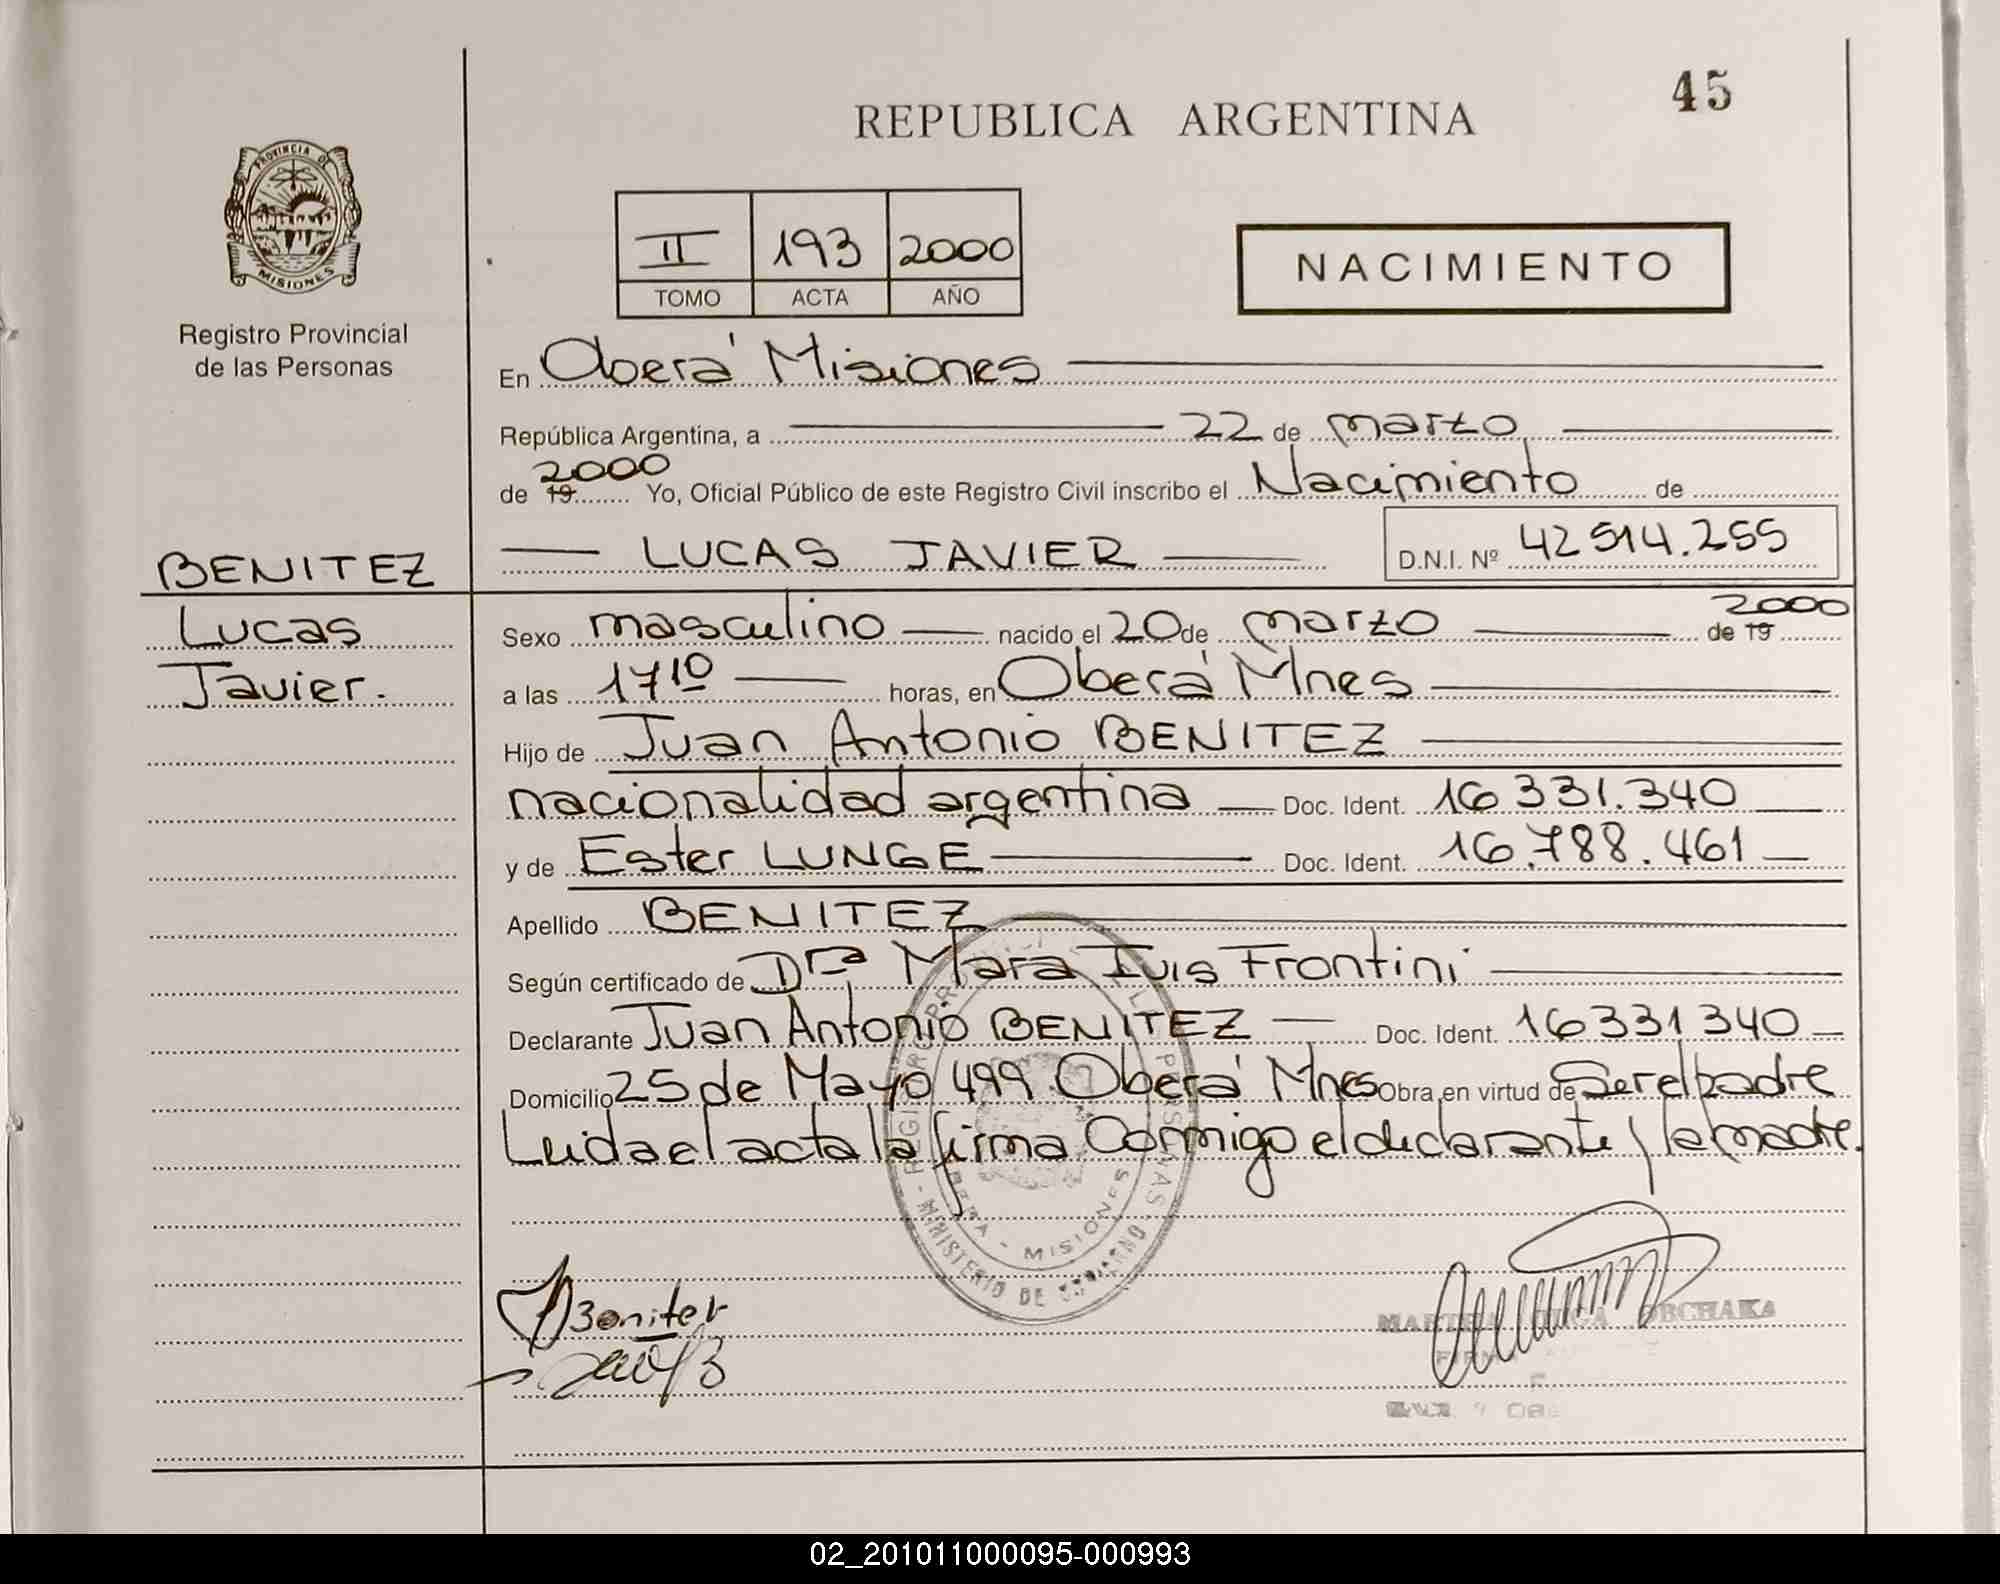 45
REPUBLICA ARGENTINA
PROVINCIA DE
MISIONES
Registro Provincial
de las Personas
II 193 2000
TOMO ACTA AÑO
NACIMIENTO
En Oberá Misiones
República Argentina, a 22 de marzo
2000
de 19 Yo, Oficial Público de este Registro Civil inscribo el Nacimiento de
LUCAS JAVIER D.N.I. Nº 42 514.255
BENITEZ
Lucas
Javier.
2000
Sexo masculino nacido el 20 de marzo de 19
a las 17 10 horas, en Oberá Mnes
Hijo de Juan Antonio BENITEZ
nacionalidad argentina Doc. Ident. 16 331.340
y de Ester LUNGE Doc. Ident. 16.788.461
Apellido BENITEZ
Según certificado de Dra Mara Iuis Frontini
Declarante Juan Antonio BENITEZ Doc. Ident. 16 331 340
Domicilio 25 de Mayo 499 Oberá Mnes Obra en virtud de Ser el padre
Leida el acta la firma Conmigo el declarante y la madre.
MISIONES
MINISTERIO DE GOBIERNO
Benitez
02_201011000095-000993